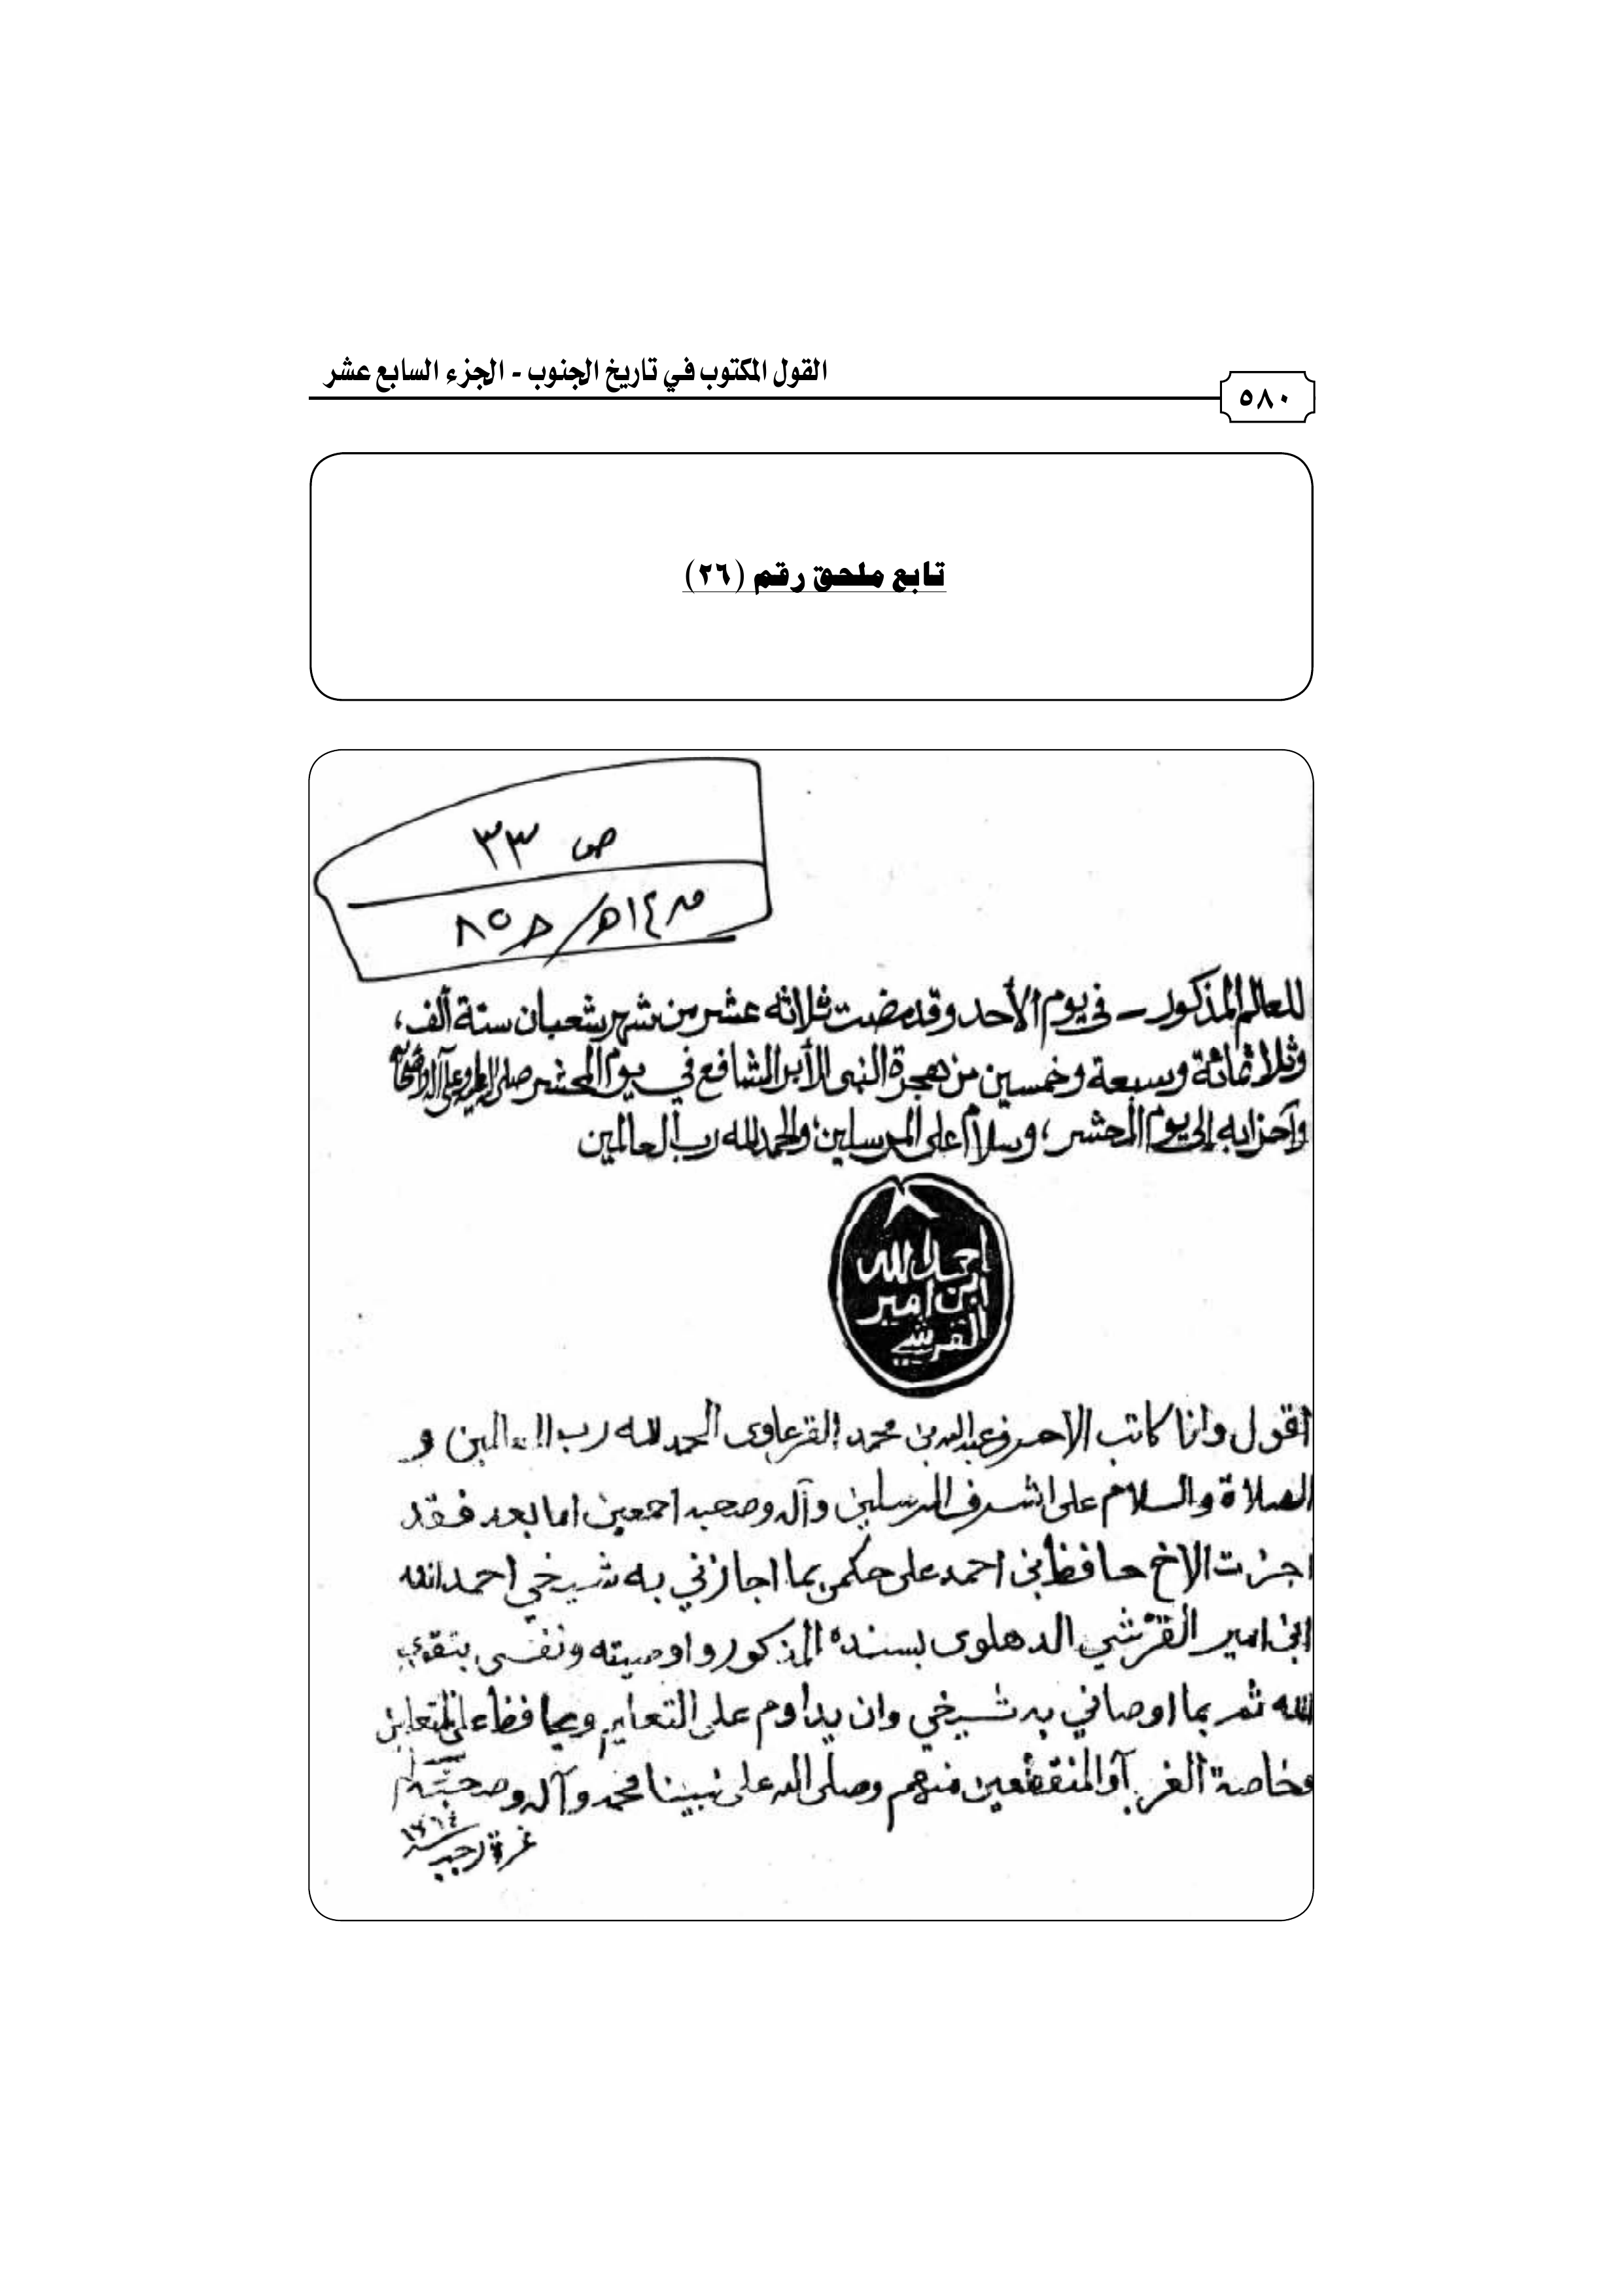 القول المكتوب في تاريخ الجنوب - الجزء السابع عشر
٥٨٠
تابع ملحق رقم (٢٦)
ص ٣٣
للعالم المذكور - في يوم الأحد وقد مضت ثلاثة عشر من شهر شعبان سنة ألف،
وثلاثمائة وسبعة وخمسين من هجرة النبي الأبر الشافع في يوم المحشر صلى الله عليه وعلى آله وأصحابه
وأحزابه إلى يوم المحشر، وسلام على المرسلين، والحمد لله رب العالمين
احمد الله
ابن امير
القرشي
أقول وانا كاتب الاحرف عبد الله بن محمد القرعاوى الحمد لله رب العالمين و
الصلاة والسلام على اشرف المرسلين وآله وصحبه اجمعين اما بعد فقد
اجزت الاخ حافظ بن احمد على حكمي بما اجازني به شيخي احمد الله
ابن امير القرشي الدهلوى بسنده المذكور واوصيته ونفسى بتقوى
الله ثم بما اوصاني به شيخي وان يداوم على التعليم ويحافظ على المتعلمين
وخاصة الغرباء والمنقطعين منهم وصلى الله على نبينا محمد وآله وصحبه وسلم
غرة رجب